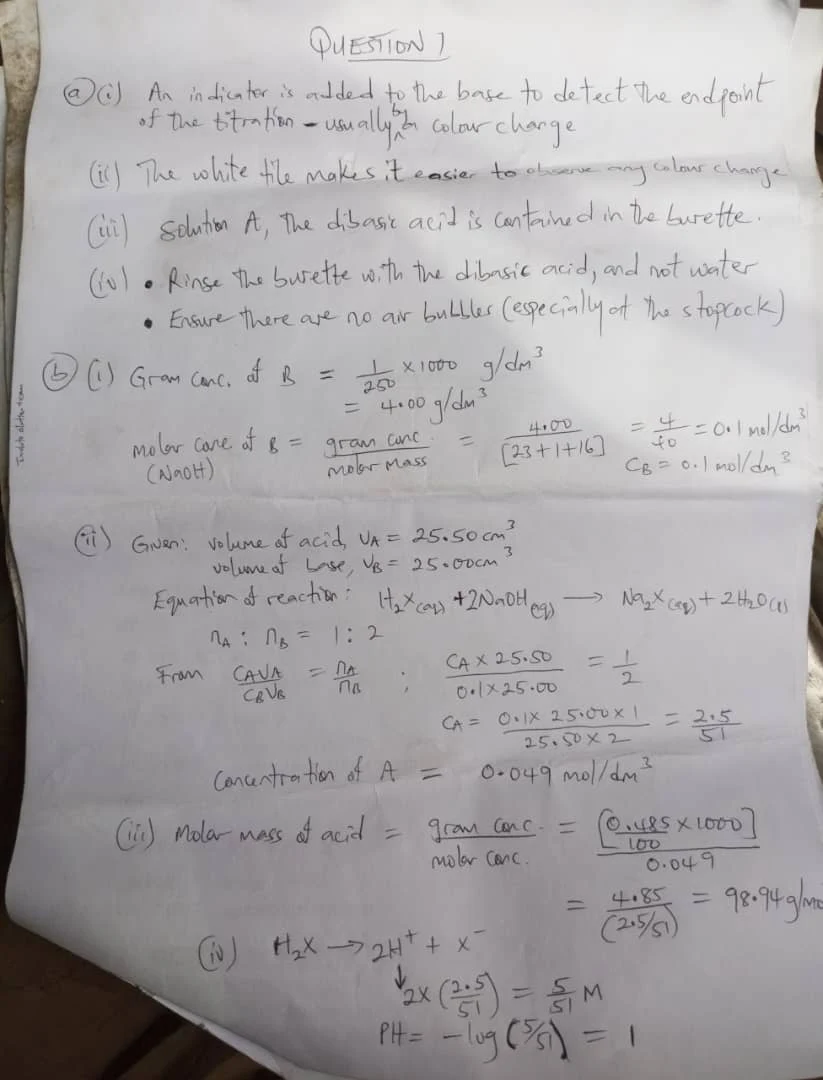 QUESTION 1
(a)(i) An indicator is added to the base to detect the endpoint
of the titration - usually by a colour change
(ii) The white tile makes it easier to observe any colour change
(iii) Solution A, The dibasic acid is contained in the burette.
(iv) • Rinse the burette with the dibasic acid, and not water
• Ensure there are no air bubbles (especially at the stopcock)
(b) (i) Gram conc. of B = 1/250 × 1000 g/dm³
= 4.00 g/dm³
molar conc of B = gram conc. / molar mass = 4.00 / [23+1+16] = 4/40 = 0.1 mol/dm³
(NaOH) CB = 0.1 mol/dm³
(ii) Given: volume of acid, VA = 25.50 cm³
volume of base, VB = 25.00cm³
Equation of reaction: H₂X(aq) + 2NaOH(aq) → Na₂X(aq) + 2H₂O(l)
nA : nB = 1 : 2
From CAVA / CBVB = nA / nB ; CA × 25.50 / 0.1×25.00 = 1/2
CA = 0.1× 25.00×1 / 25.50×2 = 2.5/51
Concentration of A = 0.049 mol/dm³
(iii) Molar mass of acid = gram conc. / molar conc. = [0.485×1000 / 100] / 0.049
= 4.85 / (2.5/51) = 98.94g/mo
(iv) H₂X → 2H⁺ + X⁻
↓ 2× (2.5/51) = 5/51 M
PH = -log (5/51) = 1